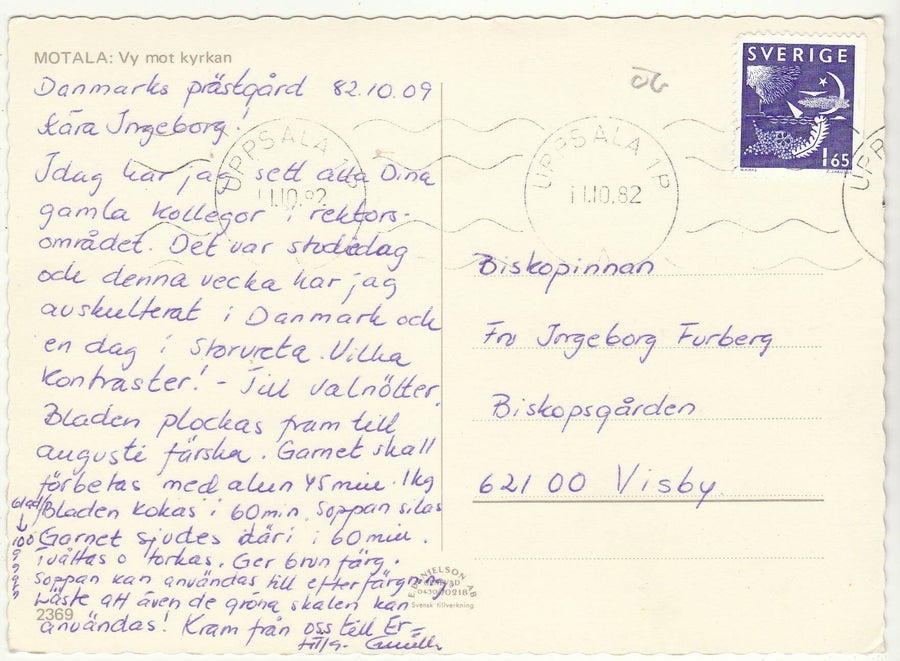 MOTALA: Vy mot kyrkan
Danmarks prästgård 82.10.09
Kära Ingeborg!
Idag har jag sett alla Dina
gamla kollegor i rektors-
området. Det var studiedag
och denna vecka har jag
auskulterat i Danmark och
en dag i Storvreta. Vilka
kontraster! - Till valnötter.
Bladen plockas fram till
augusti färska. Garnet skall
förbetas med alun 45 min. 1 kg
blad/
↓
100 g
garn
Bladen kokas i 60 min. Soppan silas
Garnet sjudes däri i 60 min.
Tvättas o torkas. Ger brun färg.
Soppan kan användas till efterfärgning.
Läste att även de gröna skalen kan
användas! Kram från oss till Er
2369
SVERIGE
1 65
UPPSALA 1
11.10.82
UPPSALA 1 P
11.10.82
UPPS
Biskopinnan
Fru Ingeborg Furberg
Biskopsgården
621 00 Visby
E. DANIELSON AB
Svensk tillverkning